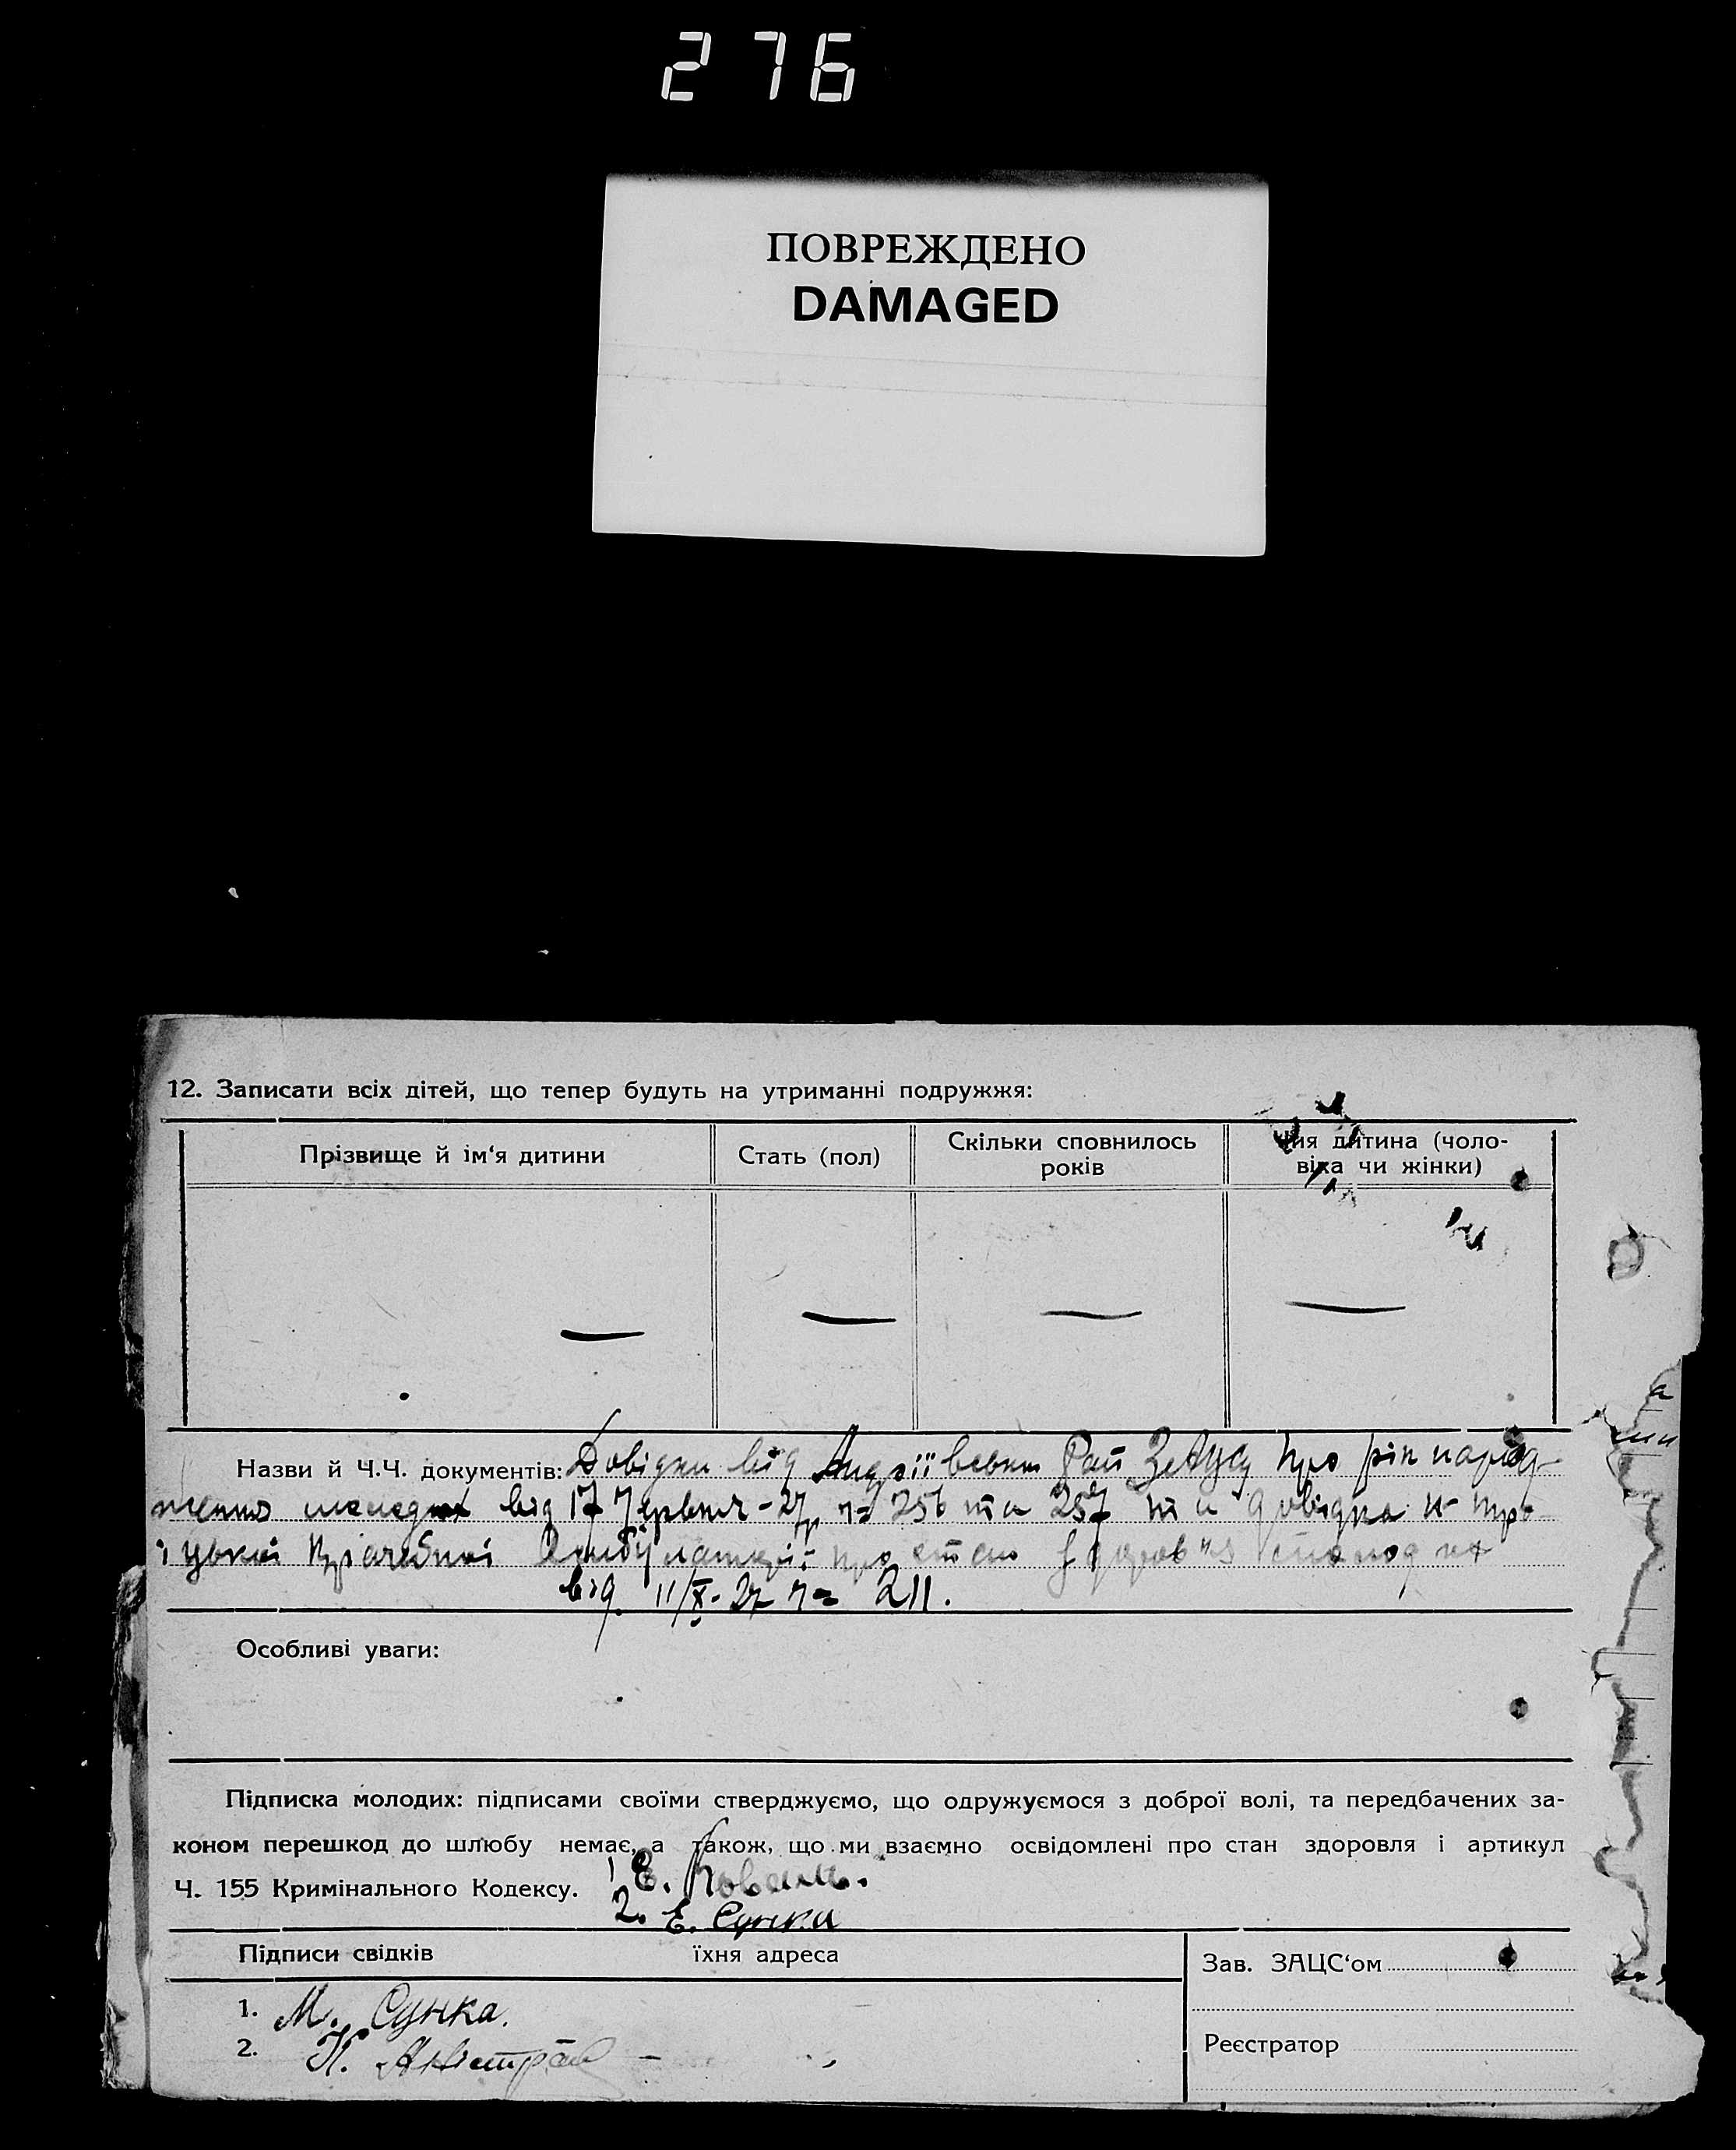 276
ПОВРЕЖДЕНО
DAMAGED
12. Записати всіх дітей, що тепер будуть на утриманні подружжя:
Прізвище й ім‘я дитини
Стать (пол)
Скільки сповнилось
років
Чия дитина (чоло-
віка чи жінки)
Назви й Ч.Ч. документів: Довідки від Андріївськ Рай ЗАГСу про рік народ-
ження молодих від 17 Червня - 27 р. № 256 та 257 та довідка Тро-
їцької Врачебної Амбулаторії про стан здоров'я молодих
від 11/X - 27 № 211.
Особливі уваги:
Підписка молодих: підписами своїми стверджуємо, що одружуємося з доброї волі, та передбачених за-
коном перешкод до шлюбу немає, а також, що ми взаємно освідомлені про стан здоровля і артикул
Ч. 155 Кримінального Кодексу. 1 Є. Коваль.
2. Е. Сунка
Підписи свідків
їхня адреса
Зав. ЗАЦС‘ом
1. М. Сунка.
2. К.
Реєстратор